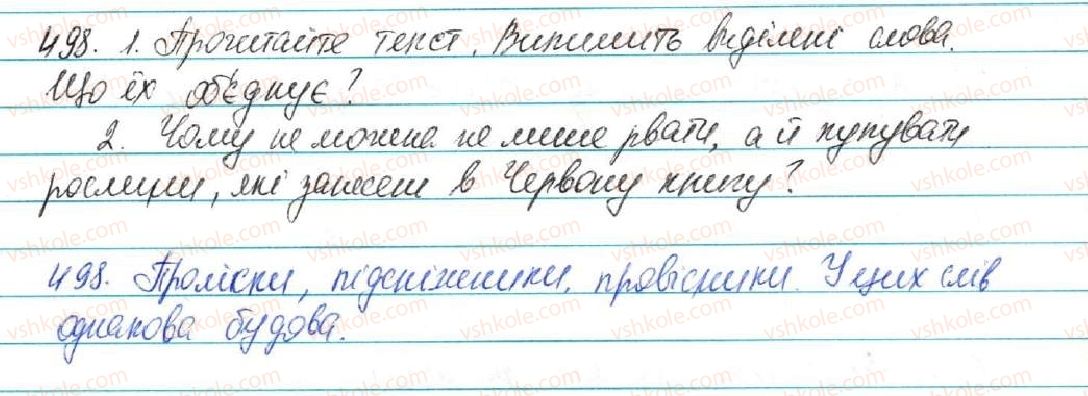 498. 1. Прочитайте текст. Випишіть виділені слова.
Що їх об'єднує?
2. Чому не можна не лише рвати, а й купувати
рослини, які занесені в Червону книгу?
498. Проліски, підсніжники, провісники. У цих слів
однакова будова.